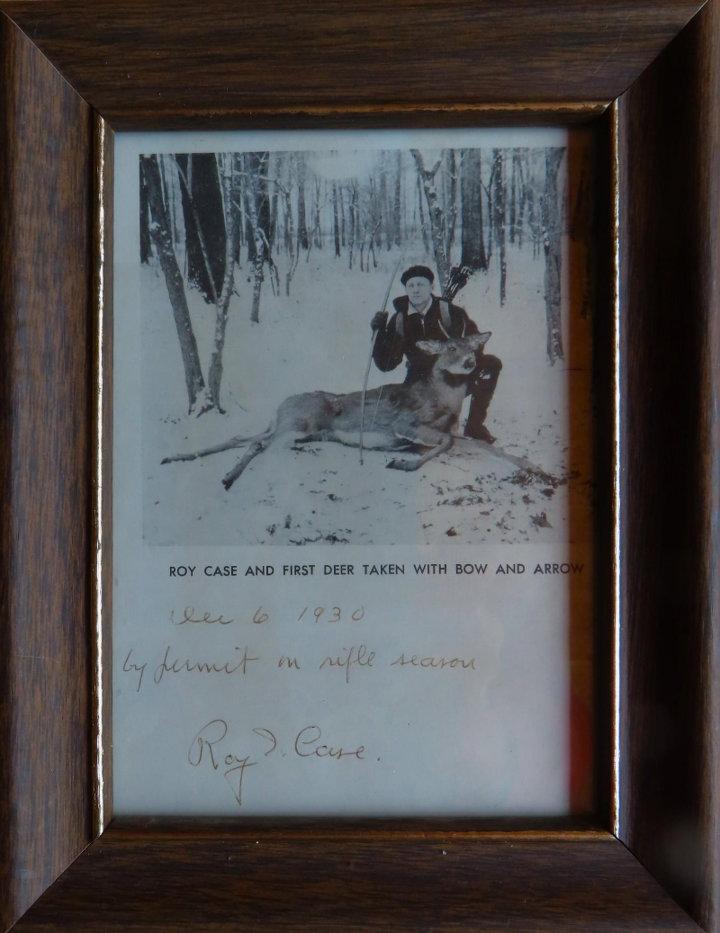 ROY CASE AND FIRST DEER TAKEN WITH BOW AND ARROW
Dec 6 1930
by permit in rifle season
Roy I. Case.